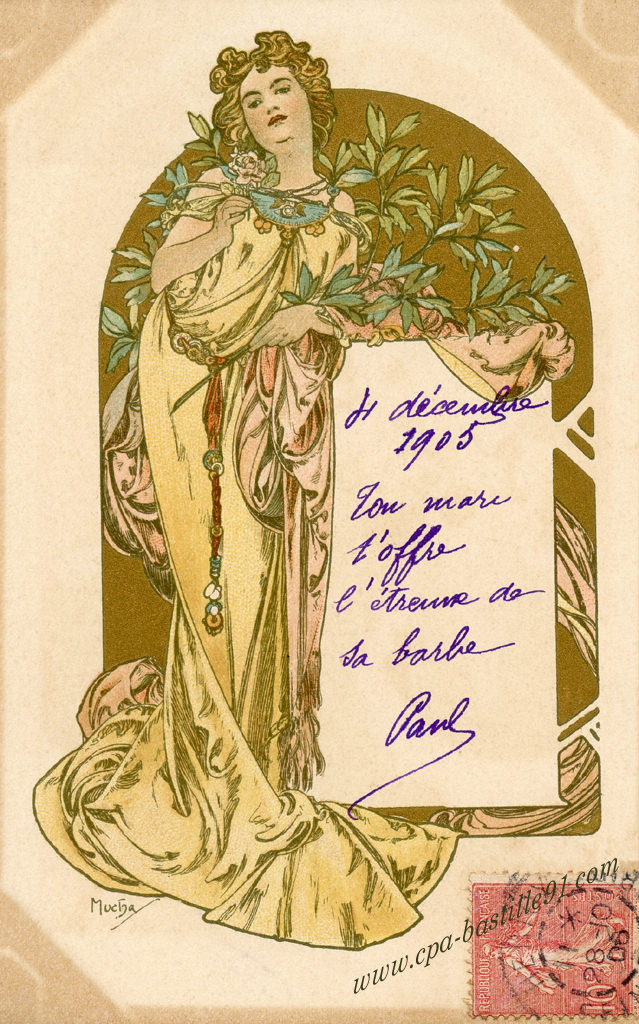 4 décembre
1905
Ton mari
t'offre
l'étrenne de
sa barbe
Paul
Mucha
www.cpa-bastille91.com
RÉPUBLIQUE FRANÇAISE
POSTES
10
28
05